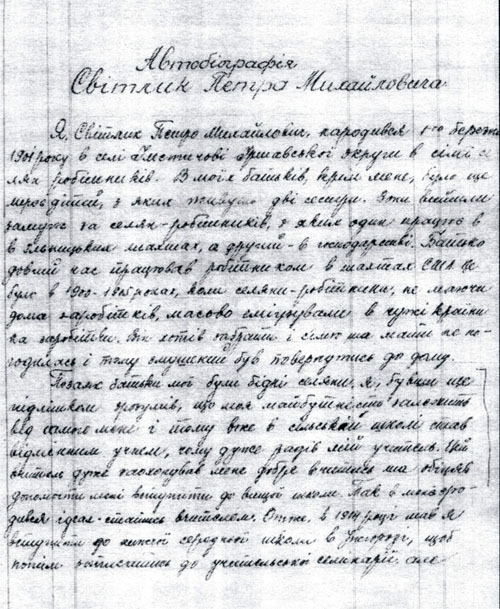 Автобіографія
Світлик Петра Михайловича
Я, Світлик Петро Михайлович, народився 1-го березня
1901 року в селі Імстичові Іршавської округи в сімї се
лян робітників. В моїх батьків, крім мене, було ще
дітий, з яких живуть дві сестри. Эти вийшли
замуж за селян-робітників, з яких один працює в
в Ільницьких шахтах, а другий - в господарстві. Батько
довший час працював робітником в шахтах США. Це
було в 1900-1905 роках, коли селяни-робітники, не маючи
дома заробітків, масово емігрували в чужі країни
на заробітки. Він хотів забрати і сімю та мати не по-
годилась і тому змушений був повернутись до дому.
Позаяк батьки мої були бідні селяни, я, бувши ще
підлітком зрозумів, що моя майбутність заложить
від самого мене і тому вже в сільській школі став
відмінним учнем, чому дуже радів мій учитель. Цей
вчитель дуже заохочував мене добре вчитися та обіцяв
допомогти мені вступити до вищої школи. Так в мене зро-
дився ідеал - статись вчителем. Отже, в 1914 році мав я
вступити до нижчої середньої школи в Ужгороді, щоб
потім записатись до учительської семінарії, але